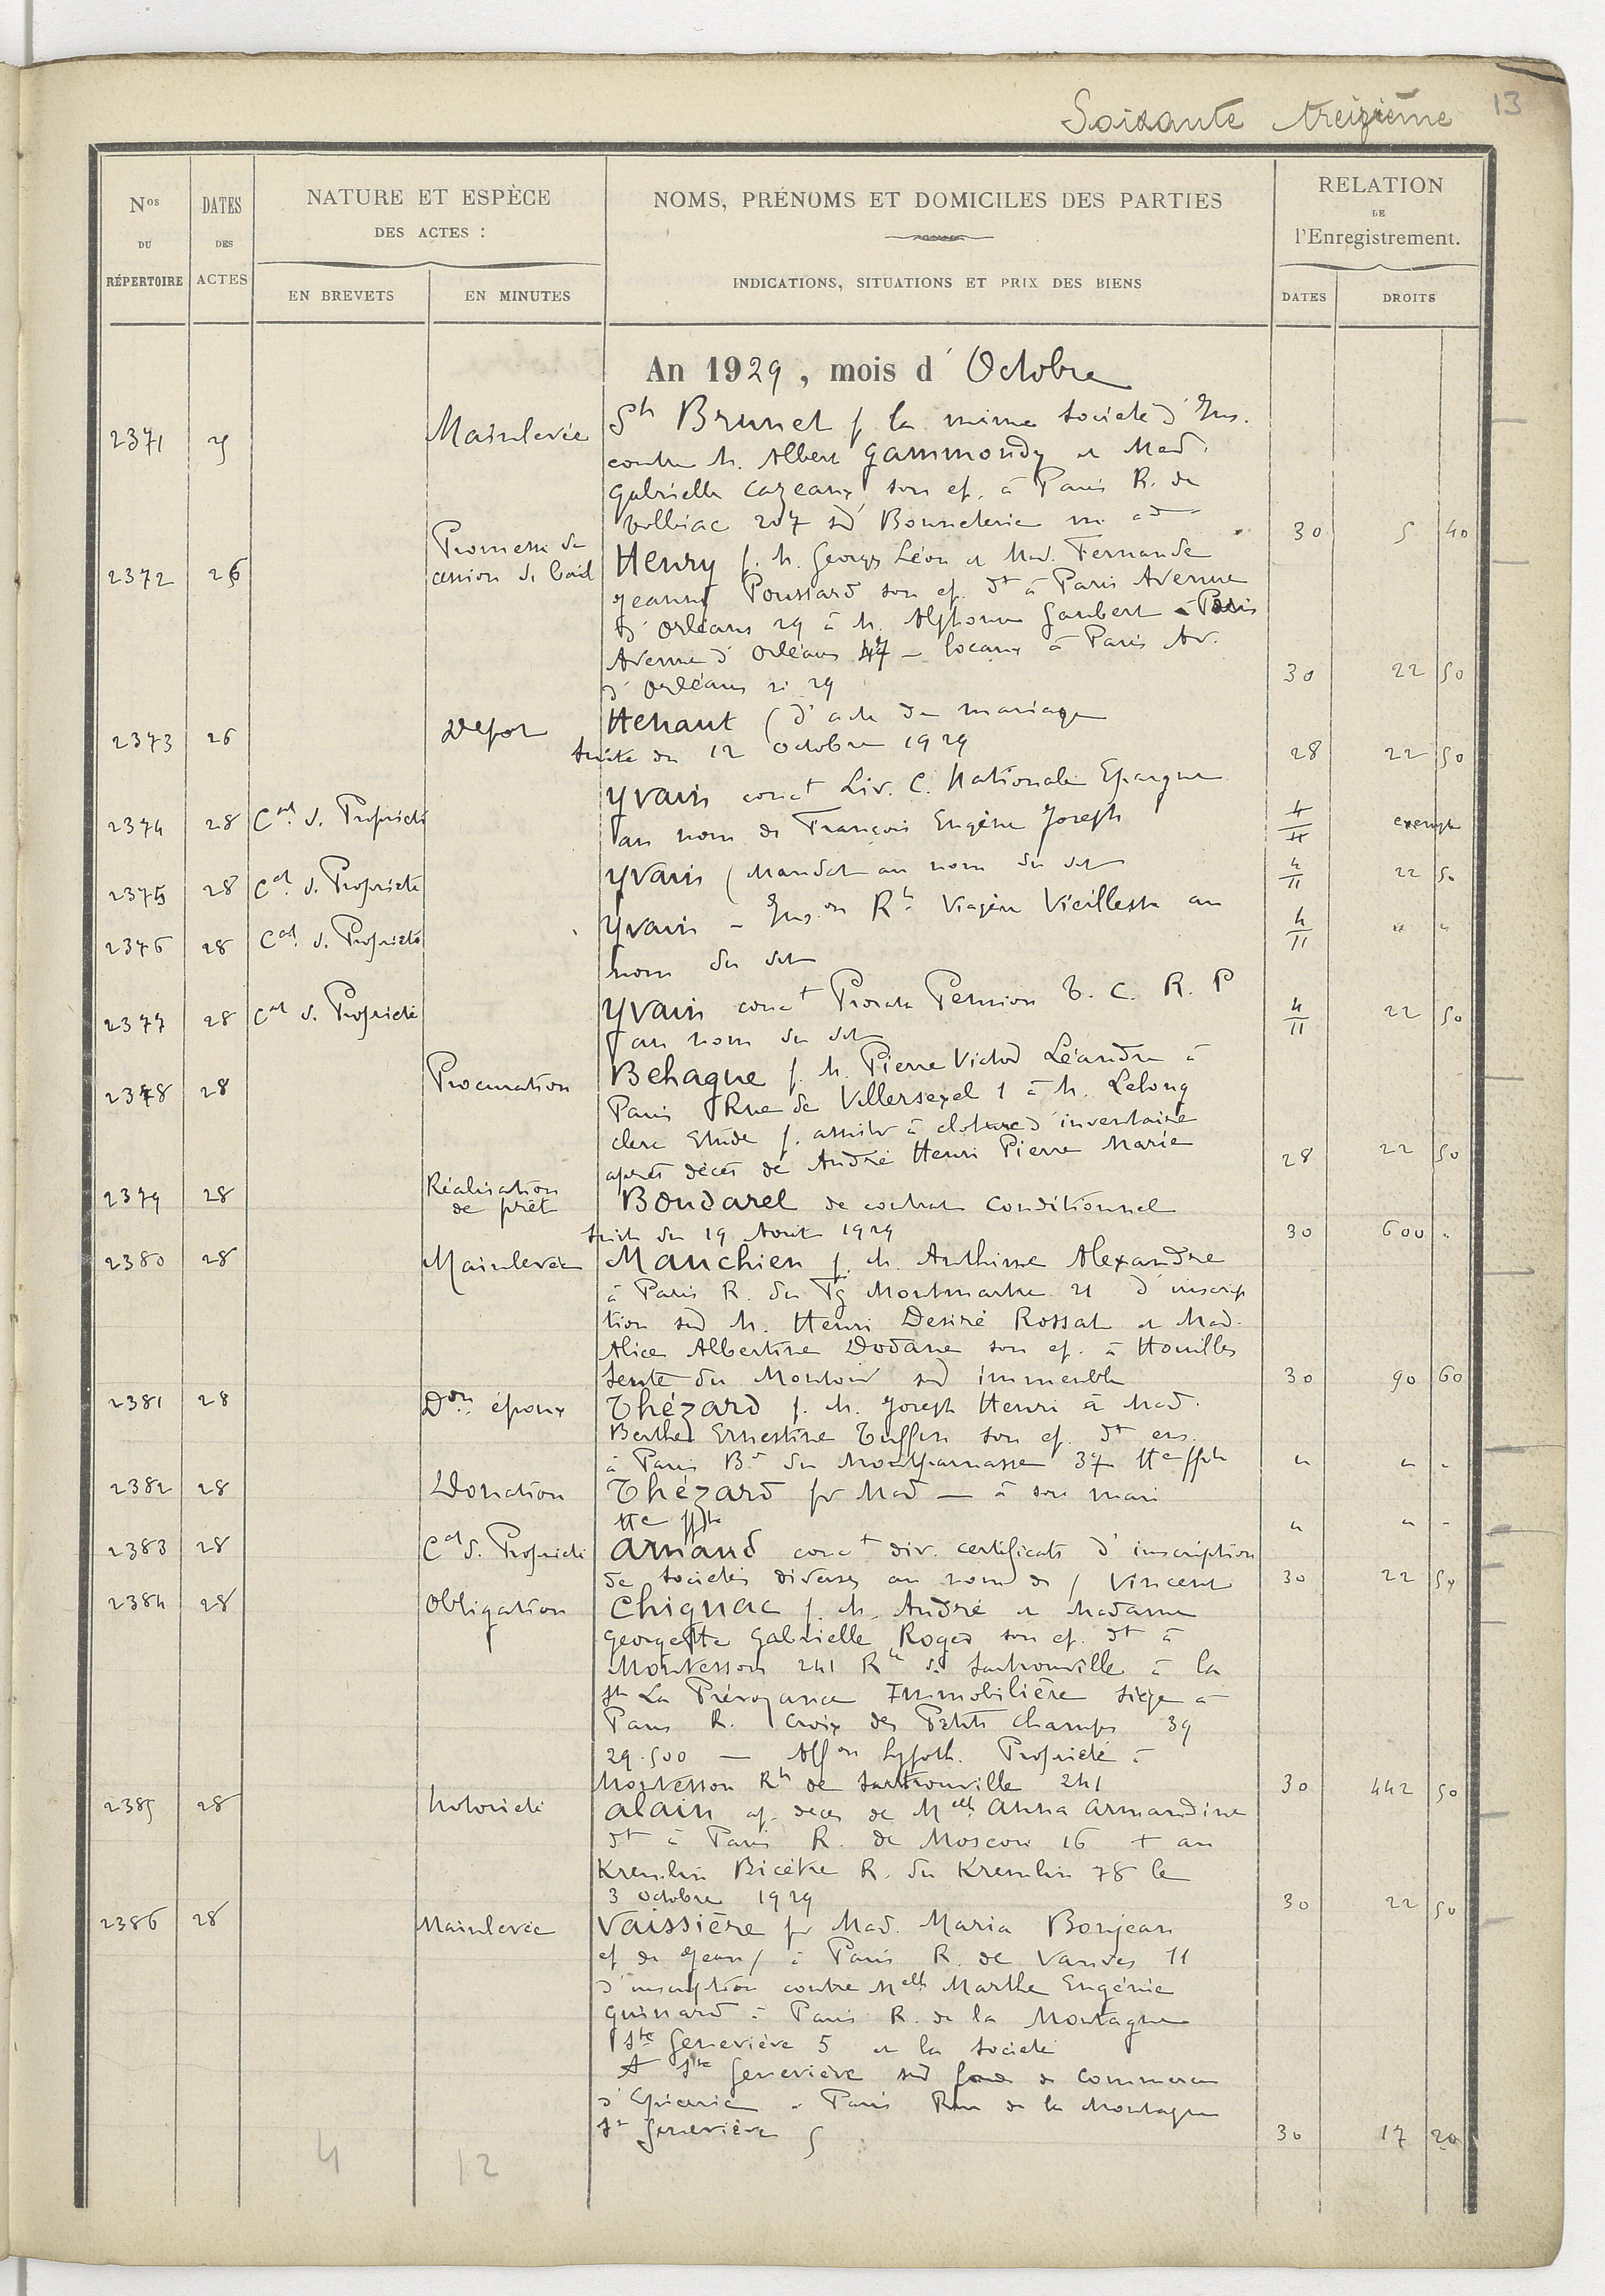 Soixante treizième 13
Nos DU RÉPERTOIRE
DATES DES ACTES
NATURE ET ESPÈCE DES ACTES :
EN BREVETS
EN MINUTES
NOMS, PRÉNOMS ET DOMICILES DES PARTIES
INDICATIONS, SITUATIONS ET PRIX DES BIENS
RELATION DE l'Enregistrement.
DATES
DROITS
An 1929, mois d'Octobre
2371 Mainlevée Sté Brunet p. la même Société d'Ins.
contre M. Albert Gammondy et Mad.
Gabrielle Cazeaux son ep. à Paris R. de
Tolbiac 207 sd Bonneterie 30 5 40
Promesse de
2372 26 cession de bail Henry p. M. Georges Léon et Mad. Fernande
Jeanne Poussard son ep. dt à Paris Avenue
d'Orléans 29 à M. Alphonse Gaubert à Paris
Avenue d'Orléans 47 — locaux à Paris Av.
d'Orléans n 29 30 22 50
2373 26 Depot Henaut (d'acte de mariage
suite du 12 octobre 1929 28 22 50
2374 28 Cat d. Propriété Yvain conct Liv. C. Nationale Epargne
au nom de François Eugène Joseph 4/11 exempt
2375 28 Cat d. Propriété Yvain (Mandat au nom du dit 4/11 22 50
2376 28 Cat d. Propriété Yvain - Inson Rte Viagère Vieillesse au
nom du dit 4/11 " "
2377 28 Cat d. Propriété Yvain conct Prorata Pension T. C. R. P
au nom du dit 4/11 22 50
2378 28 Procuration Behague p. M. Pierre Victor Léandre à
Paris Rue de Villersexel 1 à M. Lelong
clerc Etude p. assister à cloture d'inventaire
après décès de André Henri Pierre Marie 28 22 50
2379 28 Réalisation
de prêt Boudarel de contrat conditionnel
suite du 19 Aout 1929 30 600 "
2380 28 Mainlevée Manchien p. M. Anthime Alexandre
à Paris R. du Fg Montmartre 21 d'inscrip
tion sd M. Henri Desiré Rossat et Mad.
Alice Albertine Dodane son ep. à Houilles
Sente du Montoir sd immeuble 30 90 60
2381 28 Don époux Thézard p. M. Joseph Henri à Mad.
Berthe Ernestine Tuffin son ep. dt ens.
à Paris Bd du Montparnasse 37 " " "
2382 28 Donation Thézard pr Mad — à son mari
" " "
2383 28 Cat d. Propriété Arnaud conct div. certificats d'inscription
de Sociétés diverses au nom de / Vincent 30 22 50
2384 28 Obligation Chignac p. M. André et Madame
Georgette Gabrielle Roger son ep. dt à
Montesson 241 Rte de Sartrouville à la
Sté La Prévoyance Immobilière siège à
Paris R. Croix des Petits Champs 39
29.500 — Affon hypoth. Propriété à
Montesson Rte de Sartrouville 241 30 442 50
2385 28 Notoriété Alain ap. deces de Melle Anna Armandine
dt à Paris R. de Moscou 16 + au
Kremlin Bicêtre R. du Kremlin 78 le
3 octobre 1929 30 22 50
2386 28 Mainlevée Vaissière pr Mad. Maria Bonjean
ep de Jean / à Paris R. de Vanves 11
d'inscription contre Melle Marthe Eugénie
Guinard à Paris R. de la Montagne
Ste Geneviève 5 et la Société
A Ste Geneviève sd fonds de commerce
d'Epicerie à Paris Rue de la Montagne
Ste Geneviève 5 30 17 20
4 12